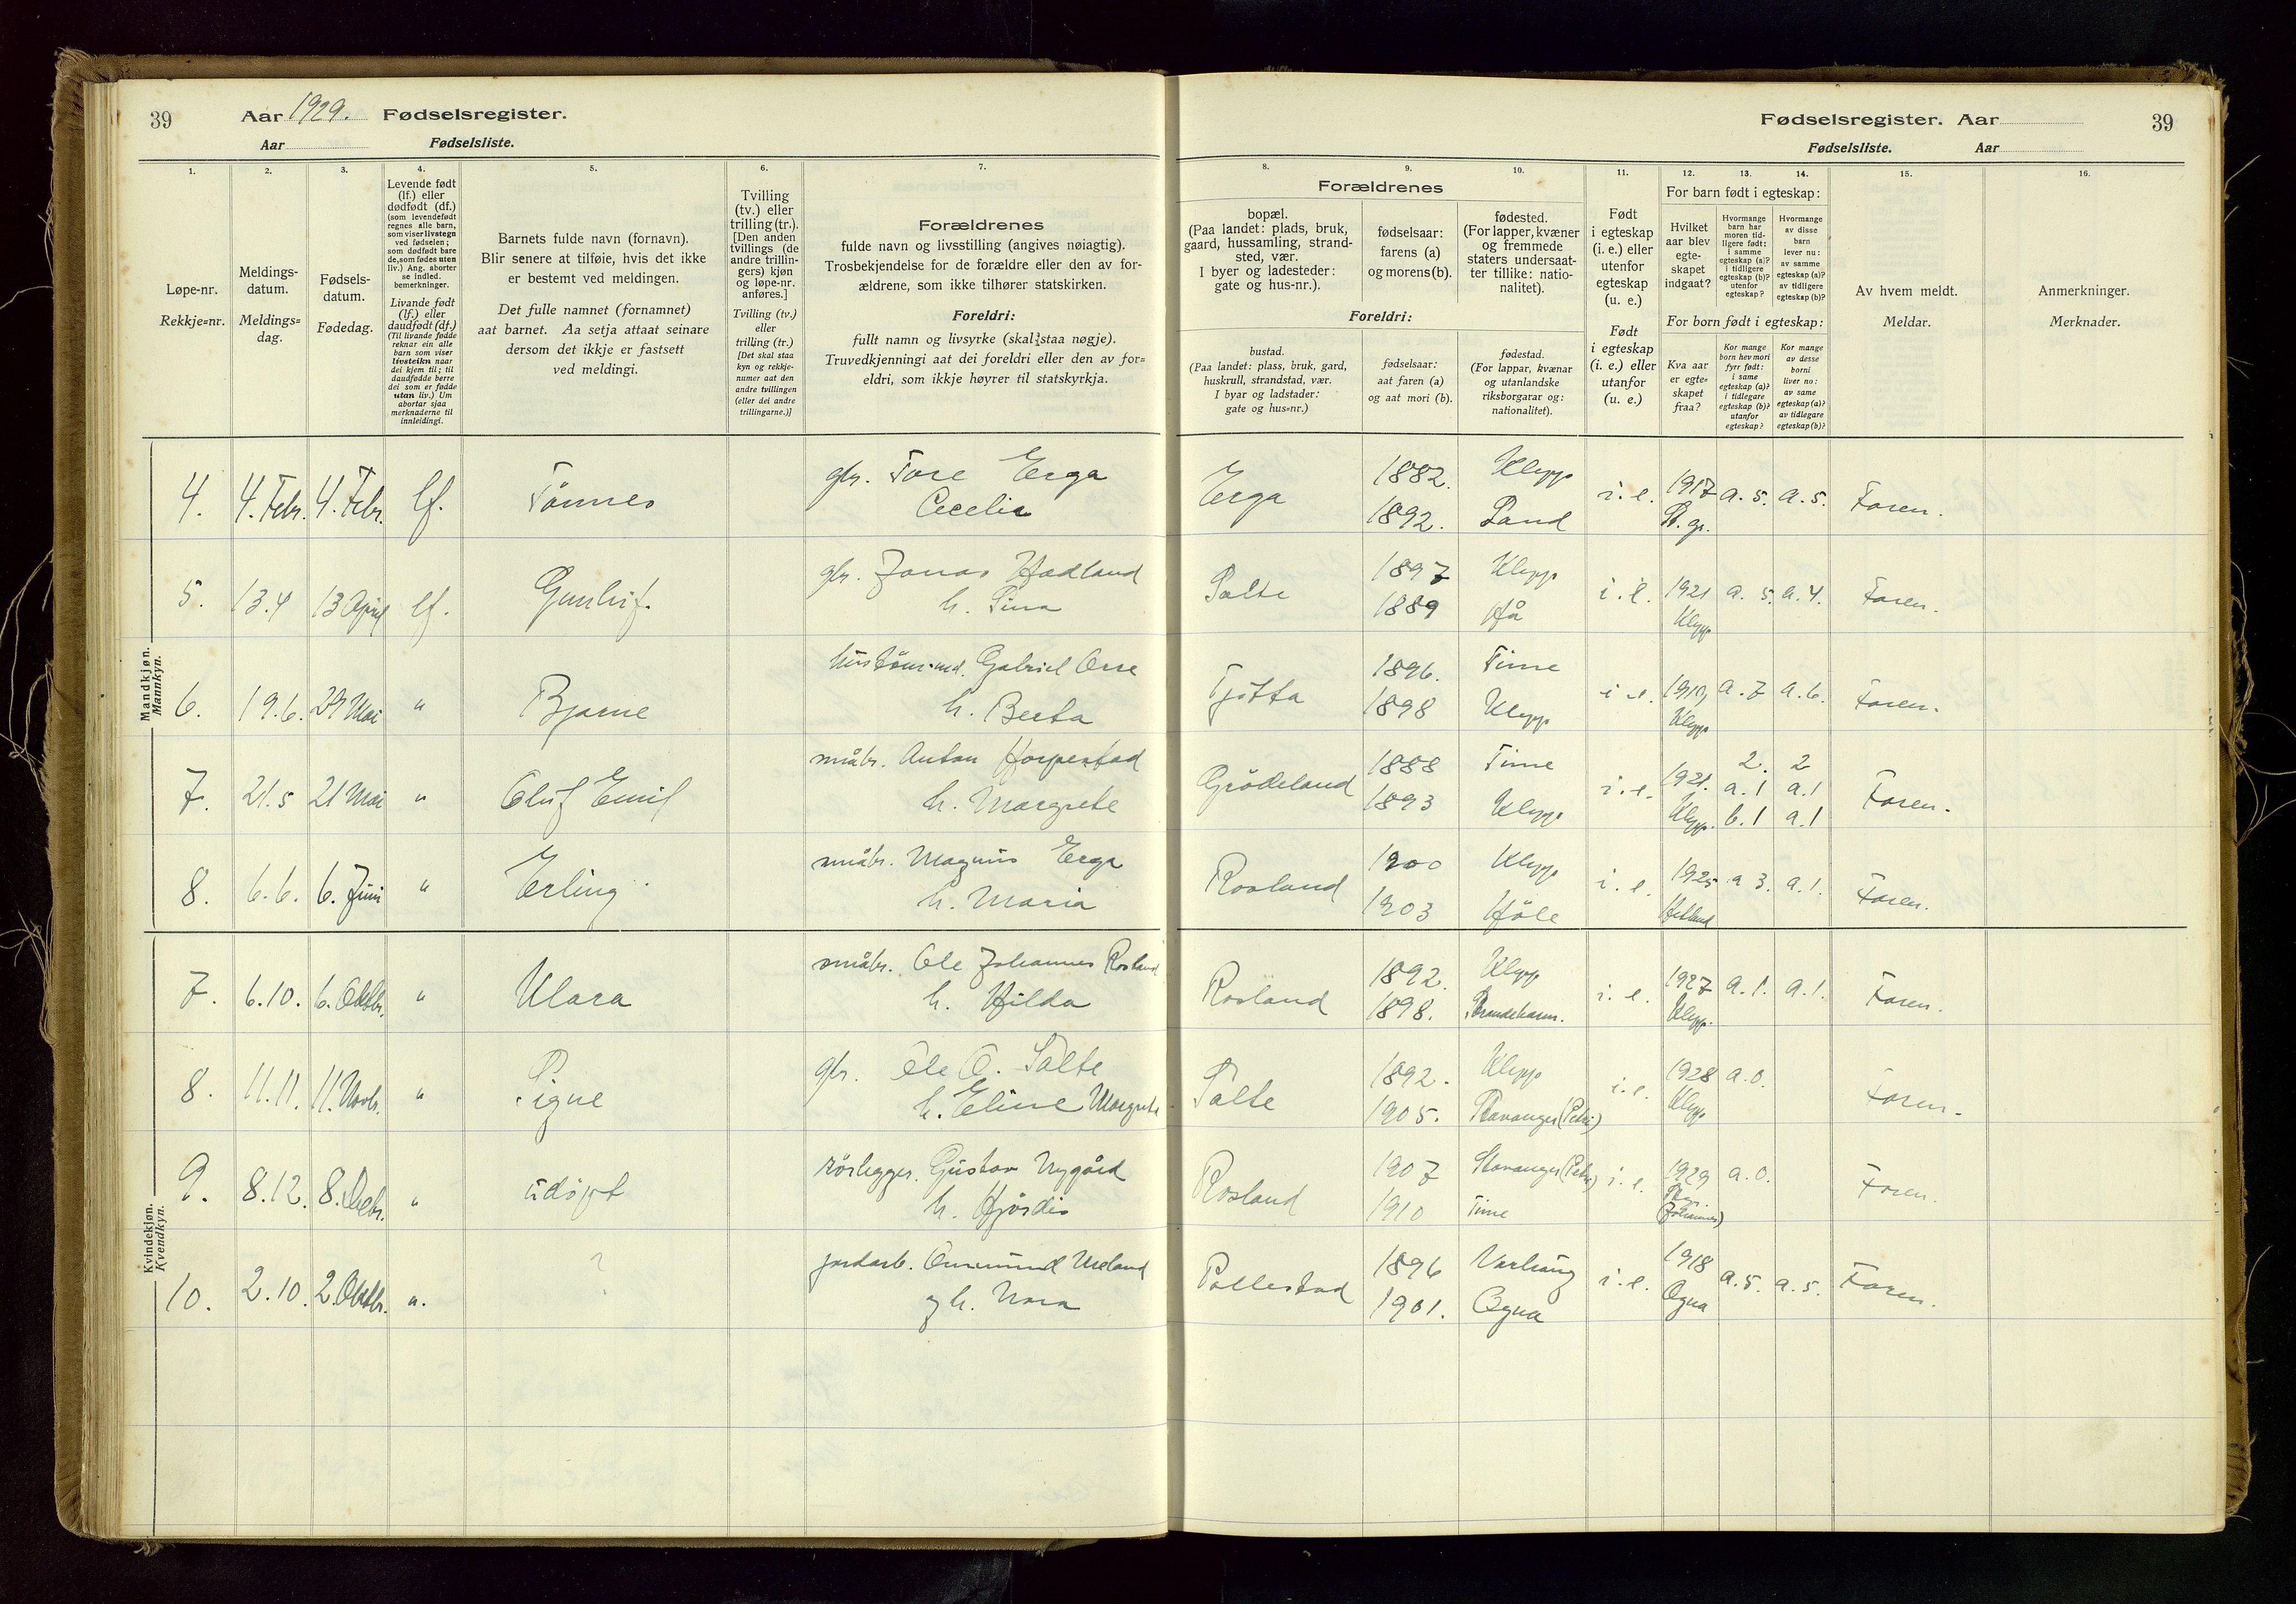 39 Aar 1929. Fødselsregister.
Aar Fødselsliste.
Fødselsregister. Aar 39
Fødselsliste. Aar
1. 2. 3. 4. 5. 6. 7. 8. 9. 10. 11. 12. 13. 14. 15. 16.
Løpe-nr.
Rekkje=nr.
Meldings-
datum.
Meldings=
dag.
Fødsels-
datum.
Fødedag.
Levende født
(lf.) eller
dødfødt (df.)
(som levendefødt
regnes alle barn,
som viser livstegn
ved fødselen;
som dødfødt bare
de, som fødes uten
liv.) Ang. aborter
se indled.
bemerkninger.
Livande født
(lf.) eller
daudfødt (df.)
(Til livande fødde
reknar ein alle
barn som viser
livsteikn naar
dei kjem til; til
daudfødde berre
dei som er fødde
utan liv.) Um
abortar sjaa
merknaderne til
innleidingi.
Barnets fulde navn (fornavn).
Blir senere at tilføie, hvis det ikke
er bestemt ved meldingen.
Det fulle namnet (fornamnet)
aat barnet. Aa setja attaat seinare
dersom det ikkje er fastsett
ved meldingi.
Tvilling
(tv.) eller
trilling (tr.).
[Den anden
tvillings (de
andre trillin-
gers) kjøn
og løpe-nr.
anføres.]
Tvilling (tv.)
eller
trilling (tr.)
[Det skal staa
kyn og rekkje-
numer aat den
andre tvillingen
(eller dei andre
trillingarne.)]
Forældrenes
fulde navn og livsstilling (angives nøiagtig).
Trosbekjendelse for de forældre eller den av for-
ældrene, som ikke tilhører statskirken.
Foreldri:
fullt namn og livsyrke (skal staa nøgje).
Truvedkjenningi aat dei foreldri eller den av for=
eldri, som ikkje høyrer til statskyrkja.
Forældrenes
bopæl.
(Paa landet: plads, bruk,
gaard, hussamling, strand-
sted, vær.
I byer og ladesteder:
gate og hus-nr.).
fødselsaar:
farens (a)
og morens (b).
fødested.
(For lapper, kvæner
og fremmede
staters undersaat-
ter tillike: natio-
nalitet).
Foreldri:
bustad.
(Paa landet: plass, bruk, gard,
huskrull, strandstad, vær.
I byar og ladstader:
gate og hus=nr.)
fødselsaar:
aat faren (a)
og aat mori (b).
fødestad.
(For lappar, kvænar
og utanlandske
riksborgarar og:
nationalitet).
Født
i egteskap
(i. e.) eller
utenfor
egteskap
(u. e.)
Født
i egteskap
(i. e.) eller
utanfor
(u. e.)
For barn født i egteskap:
Hvilket
aar blev
egte-
skapet
indgaat?
Hvormange
barn har
moren tid-
ligere født:
i samme
egteskap (a)?
i tidligere
egteskap (b)?
utenfor
egteskap?
Hvormange
av disse
barn
lever nu:
av samme
egteskap (a)?
av tidligere
egteskap (b)?
For born født i egteskap:
Kva aar
er egte=
skapet
fraa?
Kor mange
born hev mori
fyrr født:
i same
egteskap (a)?
i tidlegare
egteskap (b)?
utanfor
egteskap?
Kor mange
av desse
borni
liver no:
av same
egteskap (a)?
av tidlegare
egteskap (b)?
Av hvem meldt.
Meldar.
Anmerkninger.
Merknader.
Mandkjøn.
Mannkyn.
4. 4. Febr. 4. Febr. lf. Tønnes gbr. Tore Erga Erga 1882. Klepp i. e. 1917 a. 5. a. 5. Faren.
Cecelia 1892. Sand St. gr.
5. 13.4 13 April lf. Gunleif. gbr. Jonas Hadland Salte 1897 Klepp i. e. 1921 a. 5. a. 4. Faren.
h. Sina 1889 Hå Klepp
6. 19.6. 29 Mai " Bjarne Gabriel Orre Tjøtta 1896. Time i e. 1919, a. 7 a. 6. Faren.
h. Berta 1898 Klepp Klepp
7. 21.5 21 Mai " Oluf Emil småbr. Anton Horpestad Grødeland 1888 Time i. e. 1921. 2. 2 Faren.
h. Margrete 1893 Klepp Klepp. a. 1 a. 1
b. 1 a. 1
8. 6.6. 6. Juni " Erling. småbr. Magnus Erga Rosland 1900 Klepp i. e. 1925 a 3. a. 1. Faren.
h. Maria 1903 Høle Hetland
Kvindekjøn.
Kvendkyn.
7. 6.10. 6. Oktbr. " Klara småbr. Ole Johannes Rosland Rosland 1892. Klepp i. e. 1927 a. 1. a. 1. Faren.
h. Hilda 1898. Strandebarm. Klepp.
8. 11.11. 11. Novbr. " Signe gbr. Ole O. Salte Salte 1892. Klepp i. e. 1928 a. 0. Faren.
h. Eline Margrete 1905. Stavanger (Petri) Klepp
9. 8.12. 8. Debr. " udøpt rørlegger. Gustav Nygård Rosland 1907 Stavanger (Petri) i. e. 1929 a. 0. Faren.
h. Hjørdis 1910 Time (Johannes)
10. 2.10. 2. Oktbr. ". ? jordarb. Ommund Ueland Pollestad 1896 Varhaug i. e. 1918 a. 5. a. 5. Faren.
og h. Nora 1901. Ogna Ogna